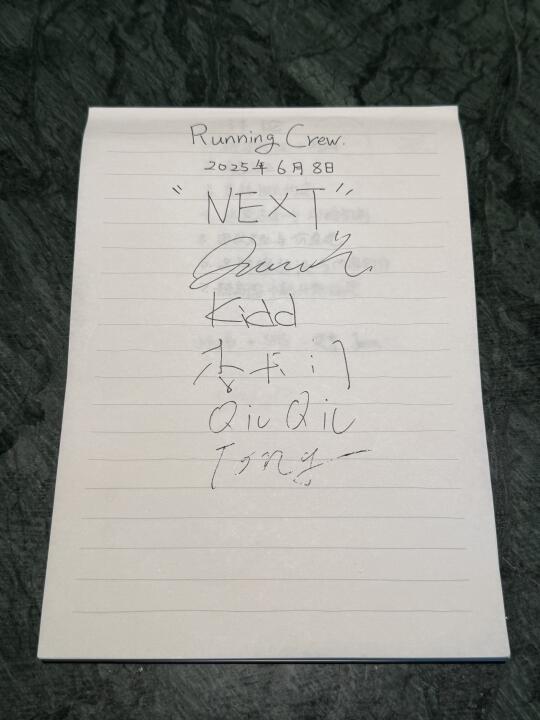 Running Crew.
2025年6月8日
"NEXT"
Kidd
QiuQiu
Tong